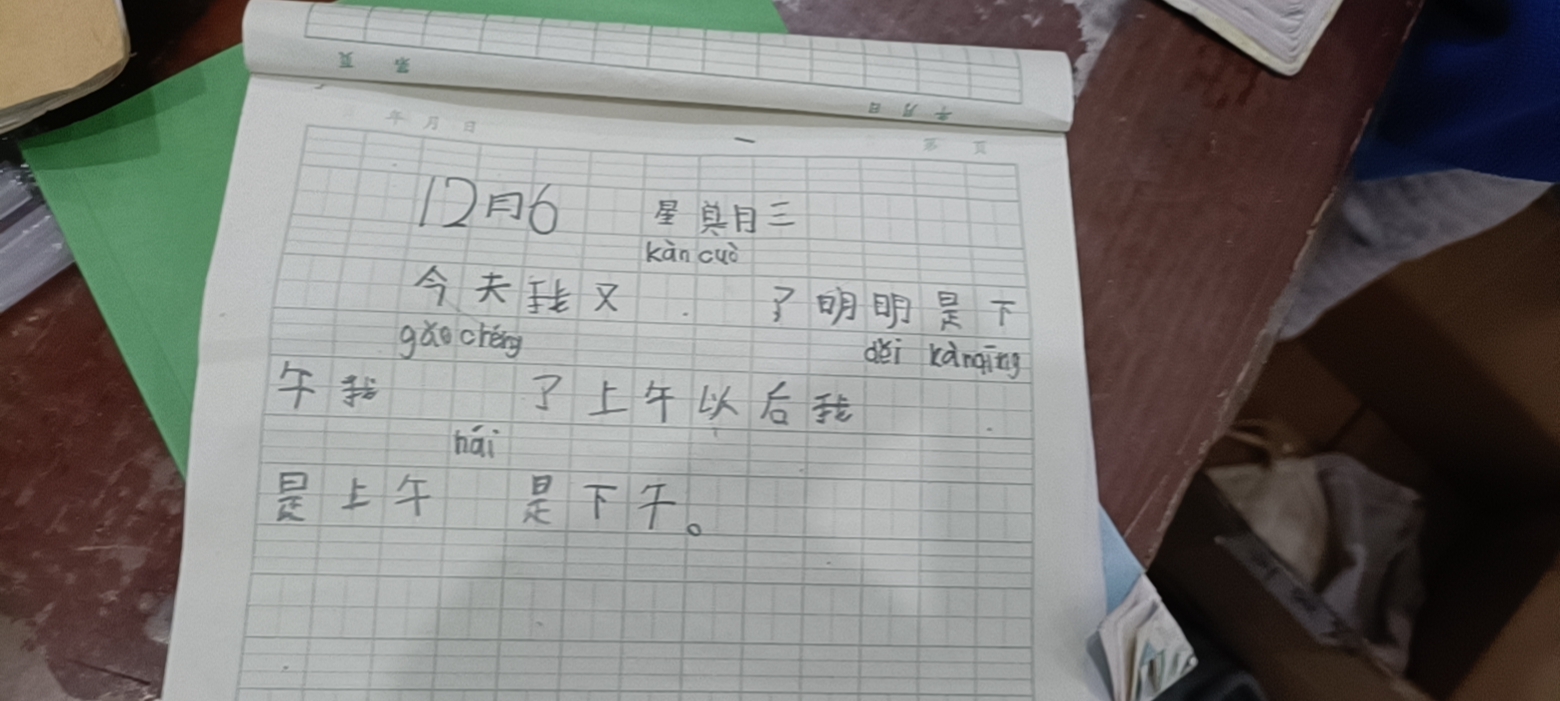 页 第
年 月 日
年 月 日 第 页
12月6 星其月三
kàn cuò
今天我又 了明明是下
gǎo chéng děi kànqīng
午我 了上午以后我
hái
是上午 是下午。